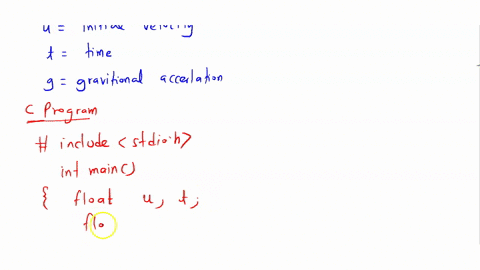 u = initial velocity
t = time
g = gravitional accerlation
C Program
# include <stdio.h>
int main()
{ float u, t;
flo